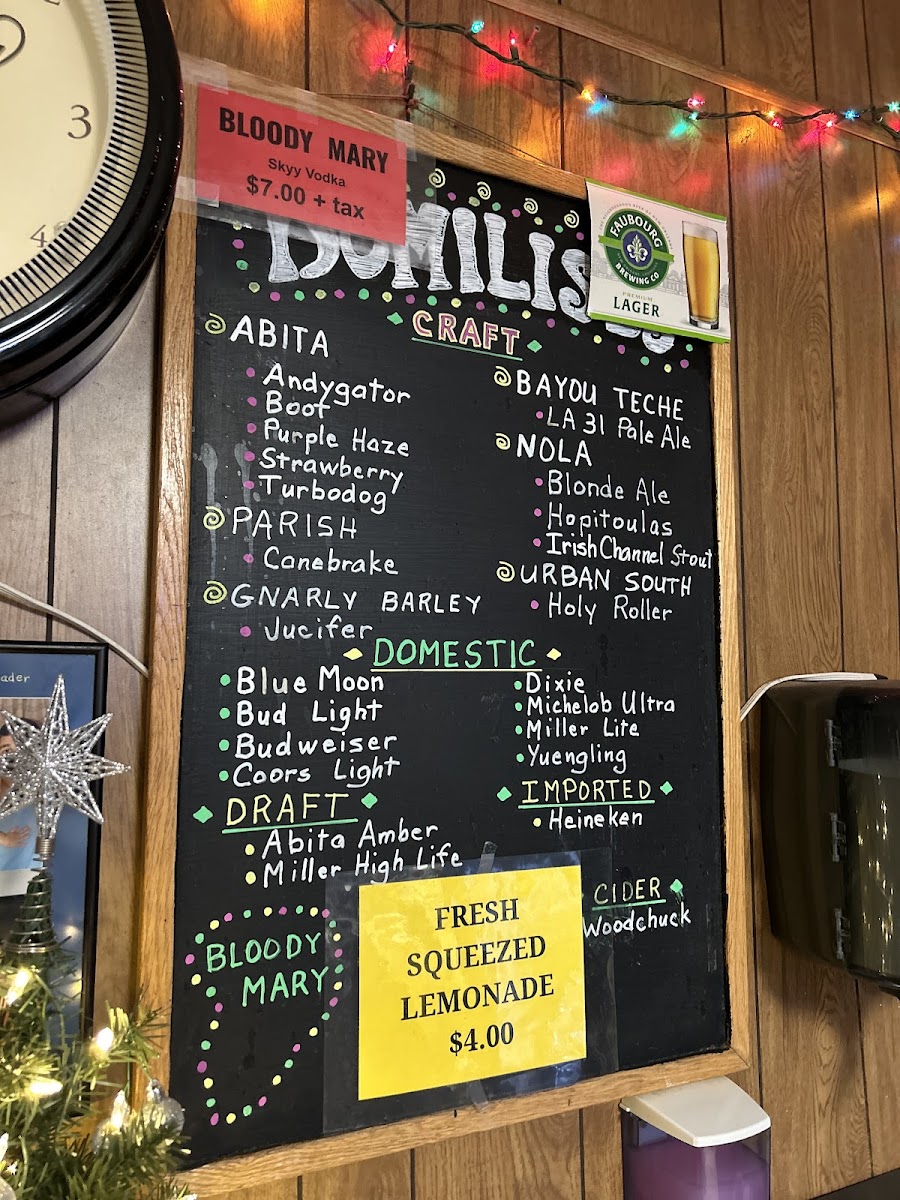 3
BLOODY MARY
Skyy Vodka
$7.00 + tax
FAUBOURG
BREWING CO
PREMIUM
LAGER
CRAFT
ABITA
Andygator
Boot
Purple Haze
Strawberry
Turbodog
PARISH
Canebrake
GNARLY BARLEY
Jucifer
BAYOU TECHE
LA 31 Pale Ale
NOLA
Blonde Ale
Hopitoulas
Irish Channel Stout
URBAN SOUTH
Holy Roller
DOMESTIC
Blue Moon
Bud Light
Budweiser
Coors Light
Dixie
Michelob Ultra
Miller Lite
Yuengling
DRAFT
Abita Amber
Miller High Life
IMPORTED
Heineken
CIDER
Woodchuck
BLOODY
MARY
FRESH
SQUEEZED
LEMONADE
$4.00